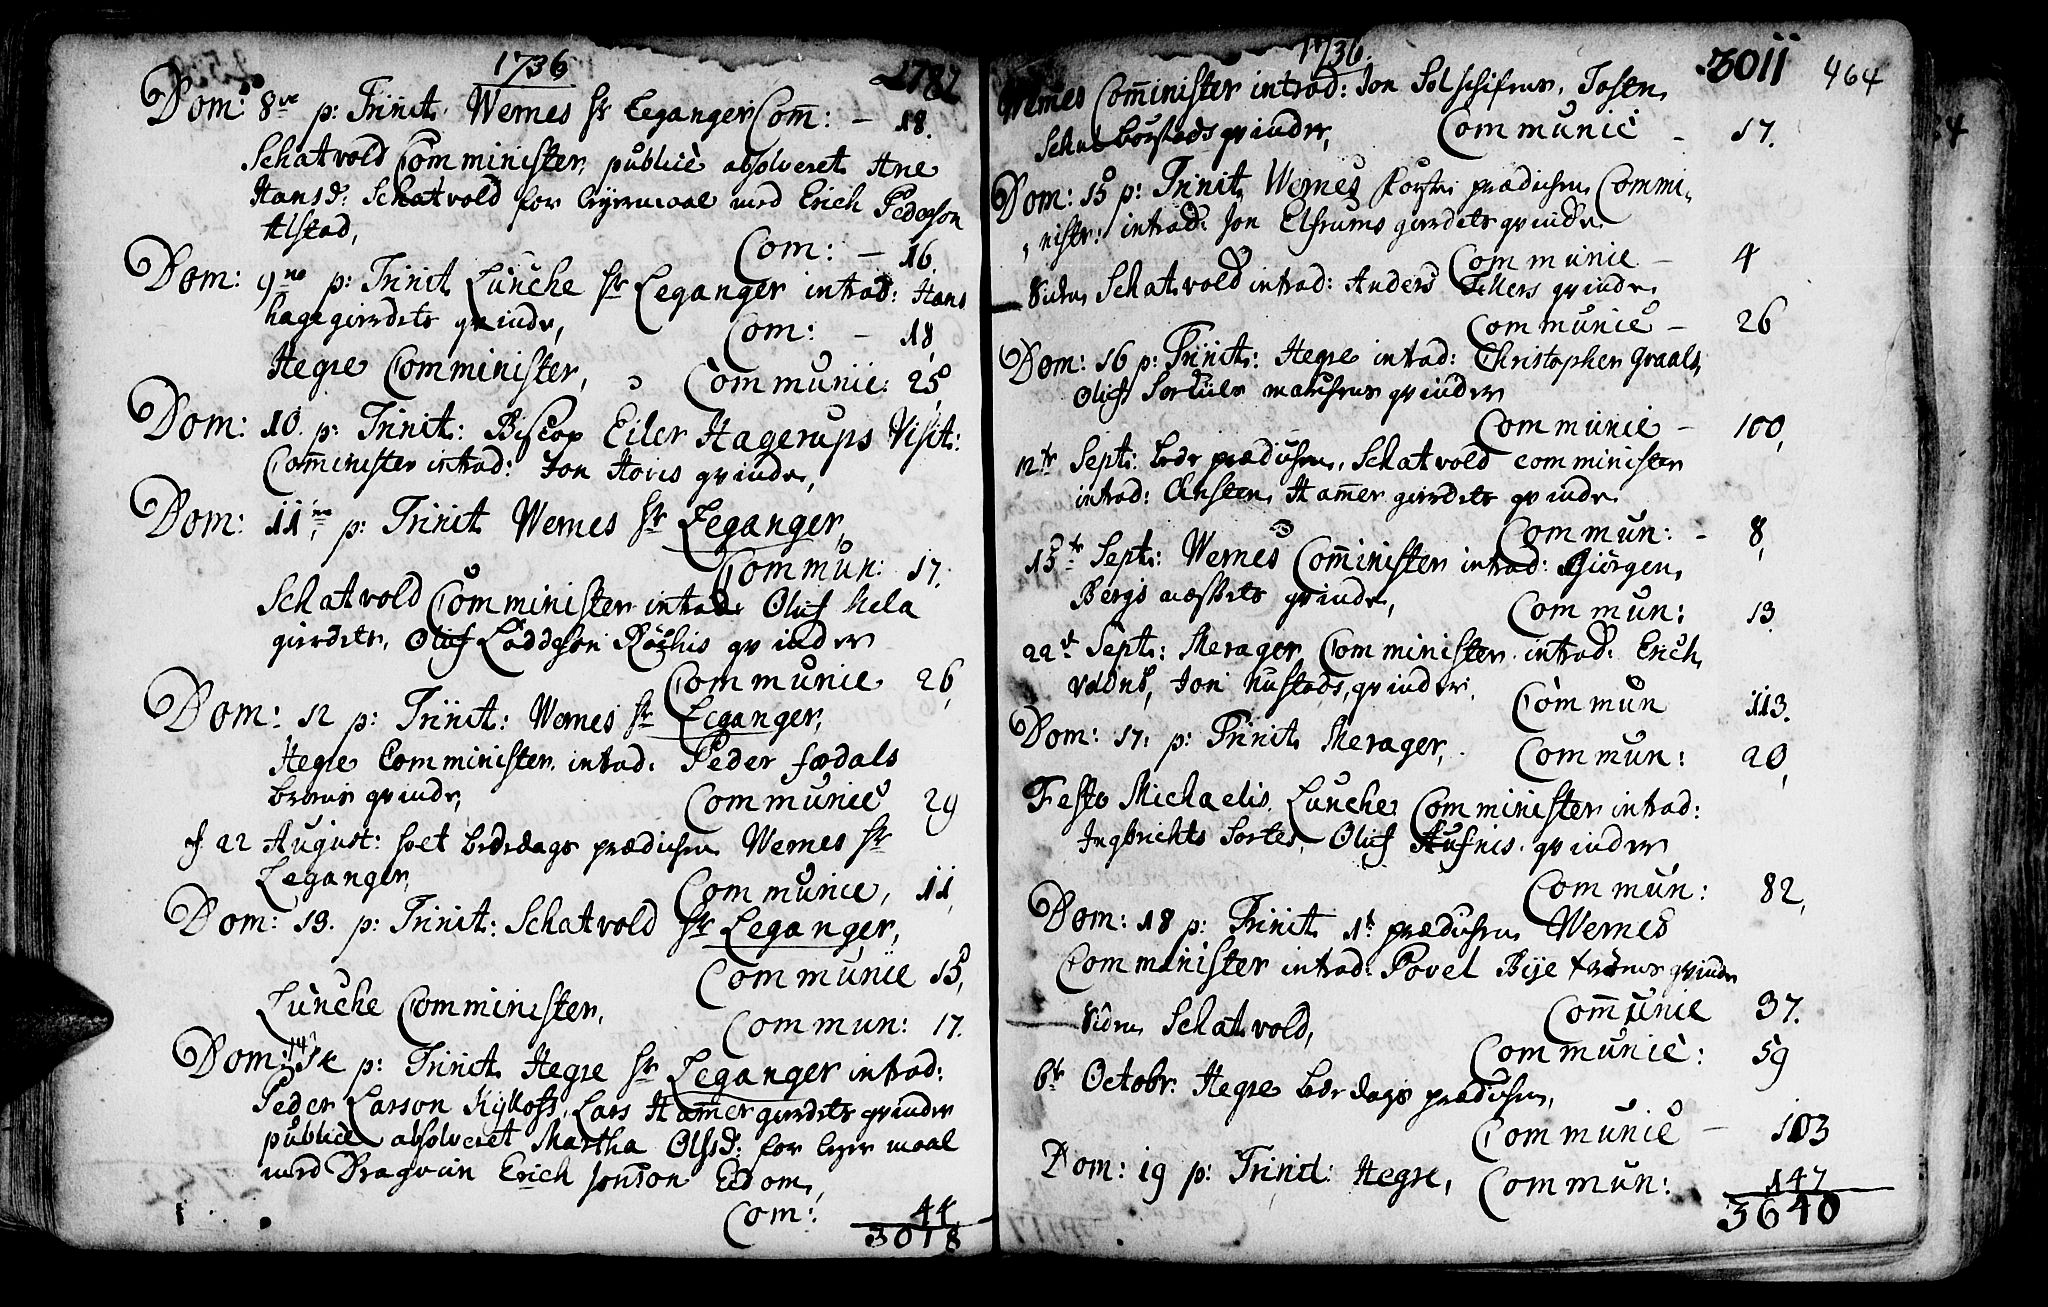 1736
2782
Dom: 8ve p: Trinit. Wernes hr Leganger Com̄: - 18.
Schatvold Comminister, publicè absolveret Ane
Hansd: Schatvold for leyermaal med Erich Pederson
Alstad,
Com: - 16.
Dom: 9no p: Trinit. Lunche hr Leganger introd: Hans
hagegierdets qvinde,
Com: - 18,
Hegre Comminister, Communic: 25,
Dom: 10. p: Trinit: Biscop Eiler Hagerups Visit:
Com̄inister introd: Jon Hovis qvinde,
Dom: 11me p: Trinit Wernes hr Leganger,
Commun: 17.
Schatvold Comminister introd: Oluf Mela
gierdets, Oluf Loddeson Röckis qvinder
Communic 26,
Dom: 12 p: Trinit: Wernes hr Leganger,
Hegre Comminister. introd. Peder fordals
broens qvinde,
Communic 29
d 22 August: holt bededags prædichen Wernes hr
Leganger,
Communic, 11,
Dom: 13. p: Trinit: Schatvold hr Leganger,
Communic 15,
Lunche Comminister,
Commun: 17.
Dom: 14 p: Trinit. Hegre hr Leganger introd:
Peder Larson Kylloss, Lars Ham̄er gierdets qvinder
publicè absolveret Martha Olsd: for leyer maal
med Dragoun Erich Jonson Eidom,
Com: 44
3018
1736.
3011 464
Wernes Com̄inister introd: Jon
qvinder, Communic - 17.
Dom: 15 p: Trinit. Wernes prædichen Commi-
nistr: introd: Jon Elfrums gierdets qvinde
Communic - 4
Siden Schatvold introd: Anders Tillers qvinde,
Communic - 26
Dom: 16 p: Trinit: Hegre introd: Christopher Graals,
Oluf qvinder
Communic - 100,
12te Sept: bede prædichen, Schatvold comminister
introd: Chisten Ham̄er gierdets qvinde
Commun: - 8,
15te Sept: Wernes Com̄inister introd: Giörgen,
Bergs næssets qvinde,
Commun: 13.
22d Sept: Merager Comminister. introd: Erich
vadns, Jon Kustads, qvinder.
Commun 113.
Dom: 17. p: Trinit. Merager,
Commun: 20,
Festo Michaelis, Lunche, Comminister introd:
Ingbrichts Sortes, Oluf Aufnis. qvinder,
Commun: 82,
Dom: 18 p: Trinit. 1t prædichen Wernes
Comminister introd: Povel Bye qvinde
Com̄unic 37.
Siden Schatvold,
Communic: 59
6te Octobr: Hegre bededags prædichen,
Communic - 103
Dom: 19 p: Trinid: Hegre, Commun: 147
3640